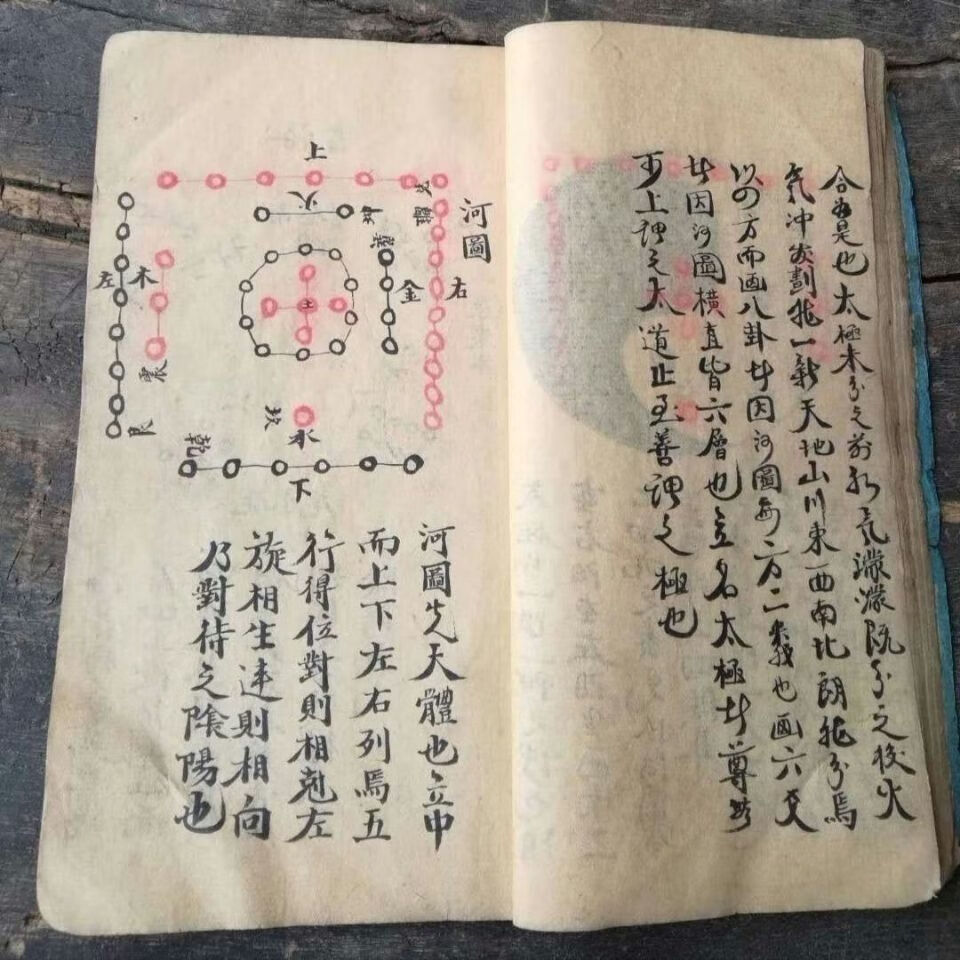 合為是也太極未分之前水氣濛濛既分之後火
氣冲炎劃然一新天地山川東西南北朗然分焉
以四方而画八卦者因河圖每一方二義也画六爻
者因河圖橫直皆六層也立名太極者尊
上謂之太道止至善謂之極也
河圖
上
火
坤
巽
左
木
震
艮
土
金
右
坎
水
乾
下
河圖先天體也立中
而上下左右列焉五
行得位對則相剋左
旋相生連則相向
乃對待之陰陽也